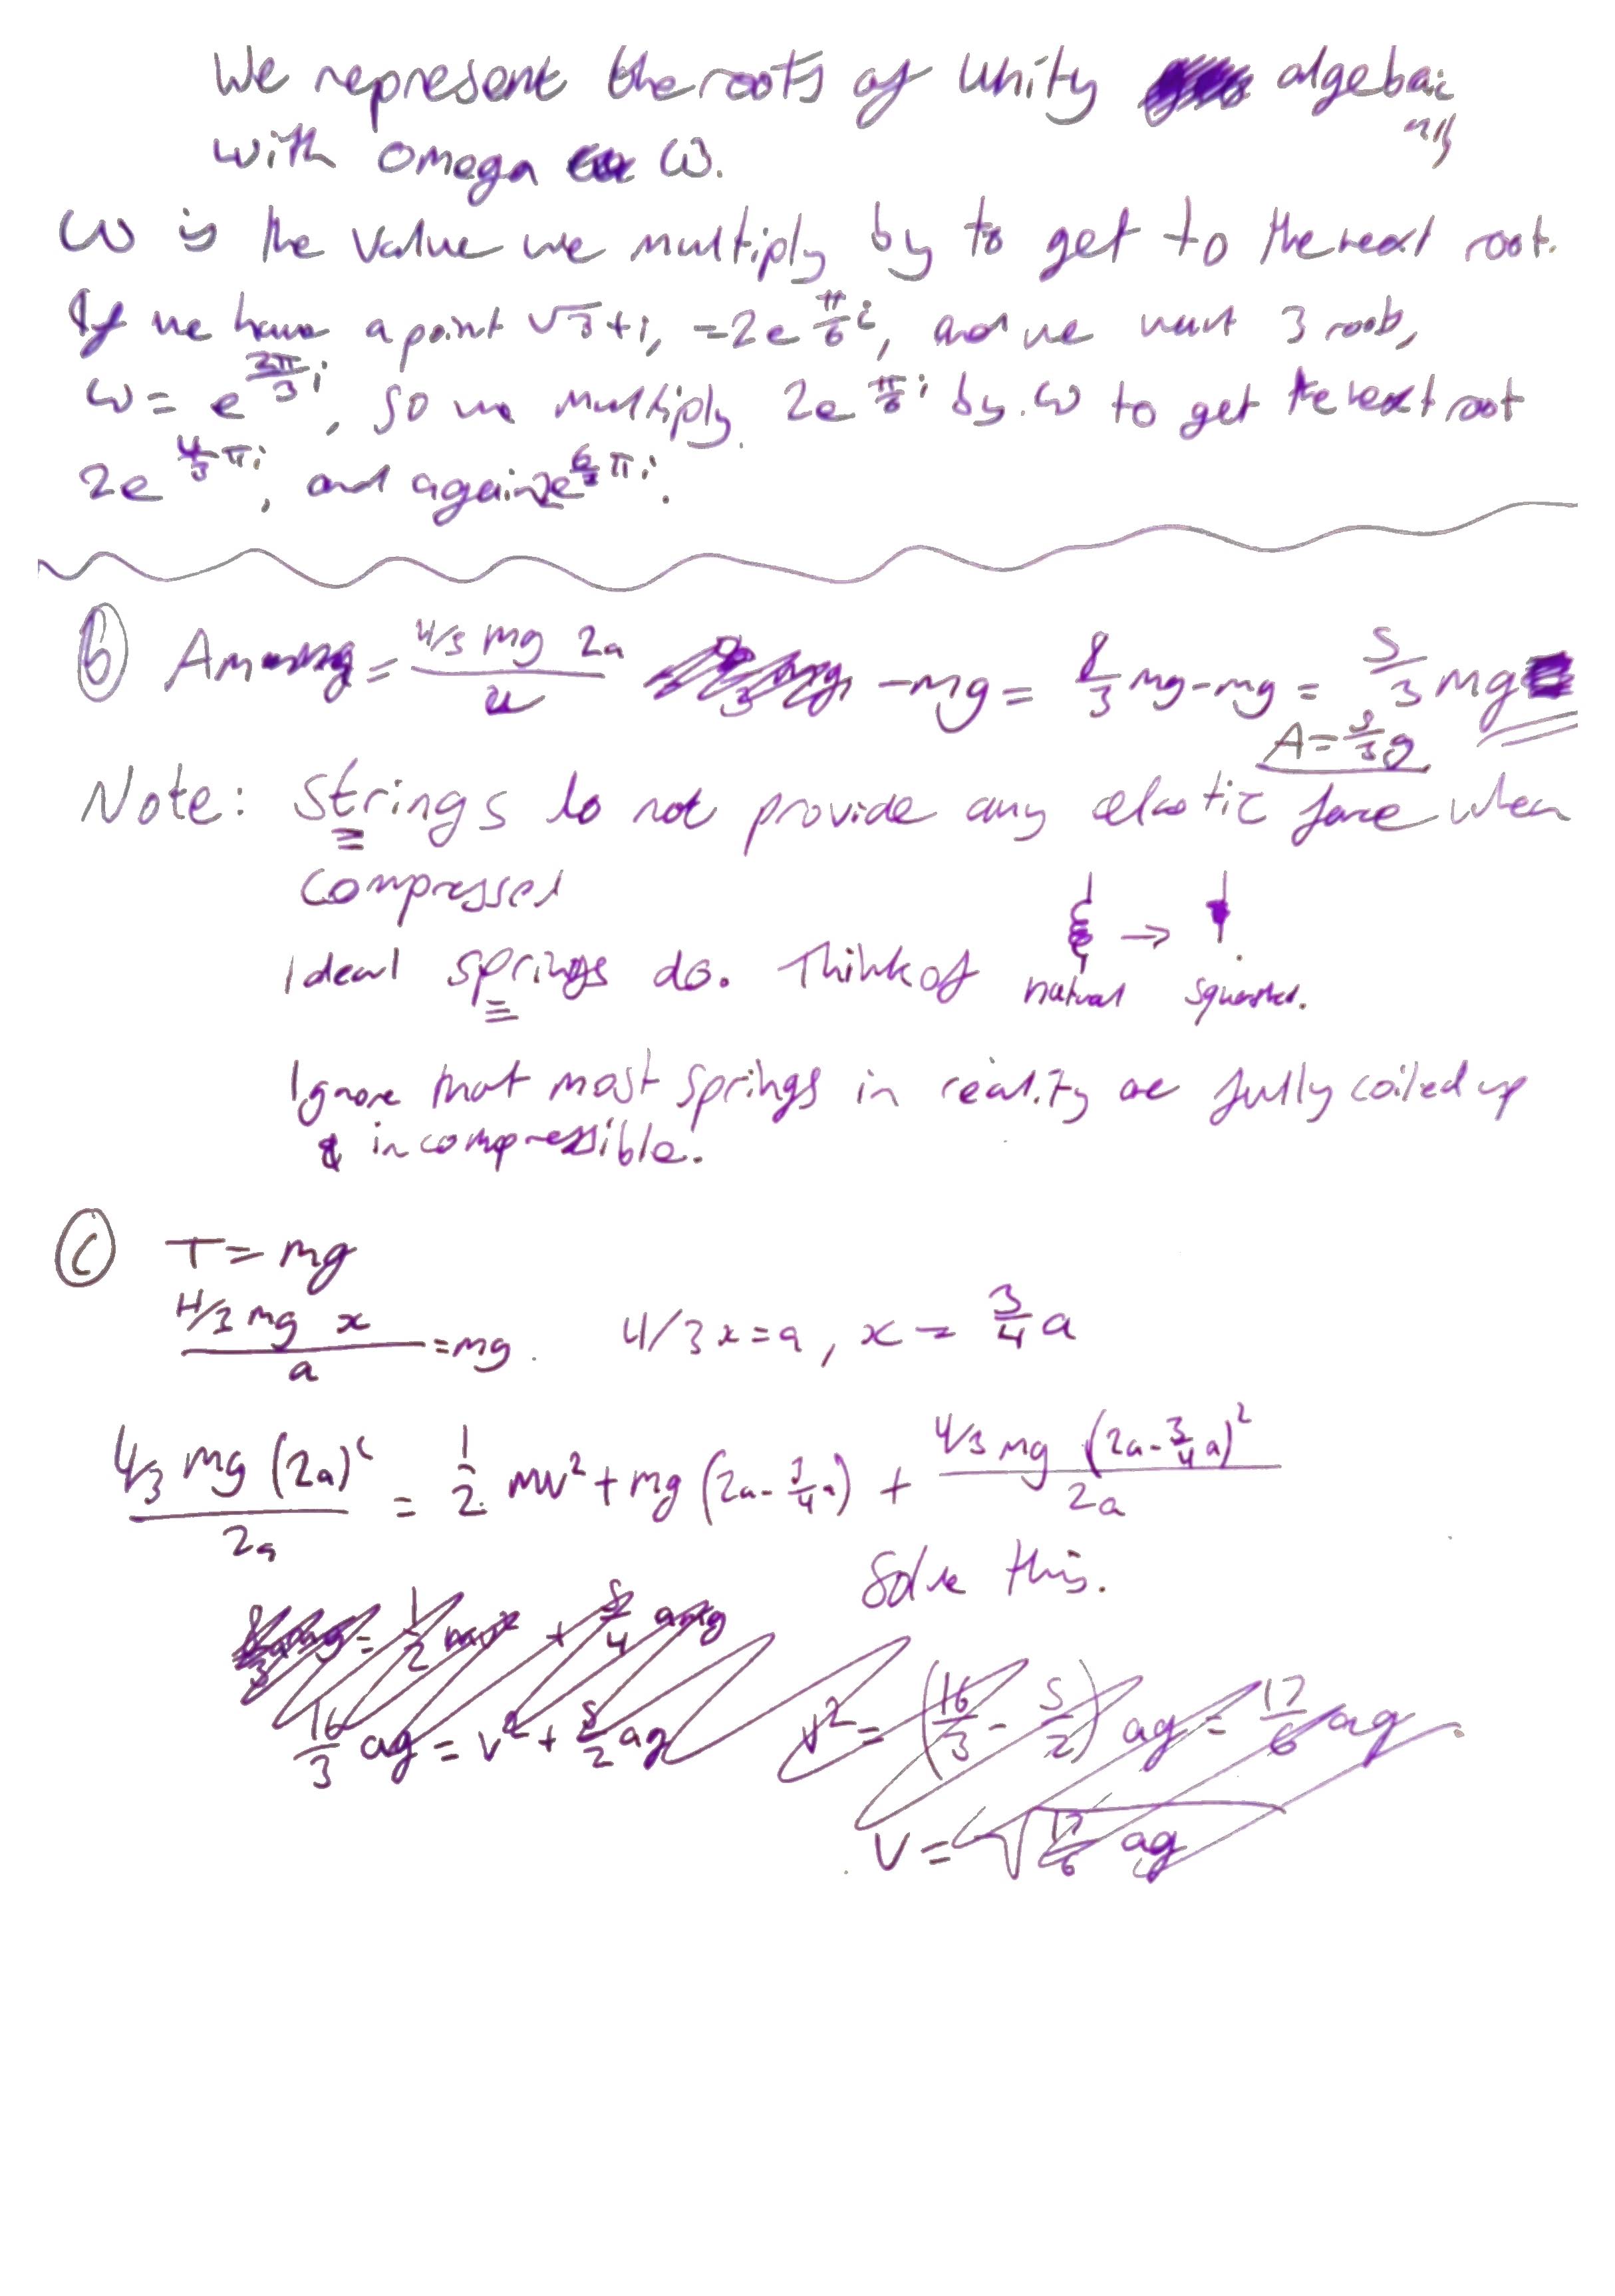 We represent the roots of unity algebraically
with omega ω.
ω is the value we multiply by to get to the next root.
If we have a point √3+i, =2e^(π/6 i), and we want 3 roots,
ω = e^(2π/3 i), so we multiply 2e^(π/6 i) by ω to get the next root
2e^(4/3 πi), and again 2e^(6/3 πi).
(b) = (4/3 mg 2a)/a -mg = 8/3 mg-mg = 5/3 mg
A=5/3g
Note: Strings do not provide any elastic force when
compressed
Ideal springs do. Think of → 
natural squashed.
Ignore that most springs in reality are fully coiled up
& incompressible.
(c) T = mg
(4/3 mg x)/a =mg. 4/3x=a, x = 3/4 a
(4/3 mg (2a)²)/2a = 1/2 mv² + mg (2a-3/4a) + (4/3 mg (2a-3/4a)²)/2a
Solve this.
16/3 ag = v² + 5/2 ag v² = (16/3 - 5/2) ag = 17/6 ag.
V = √(17/6 ag)